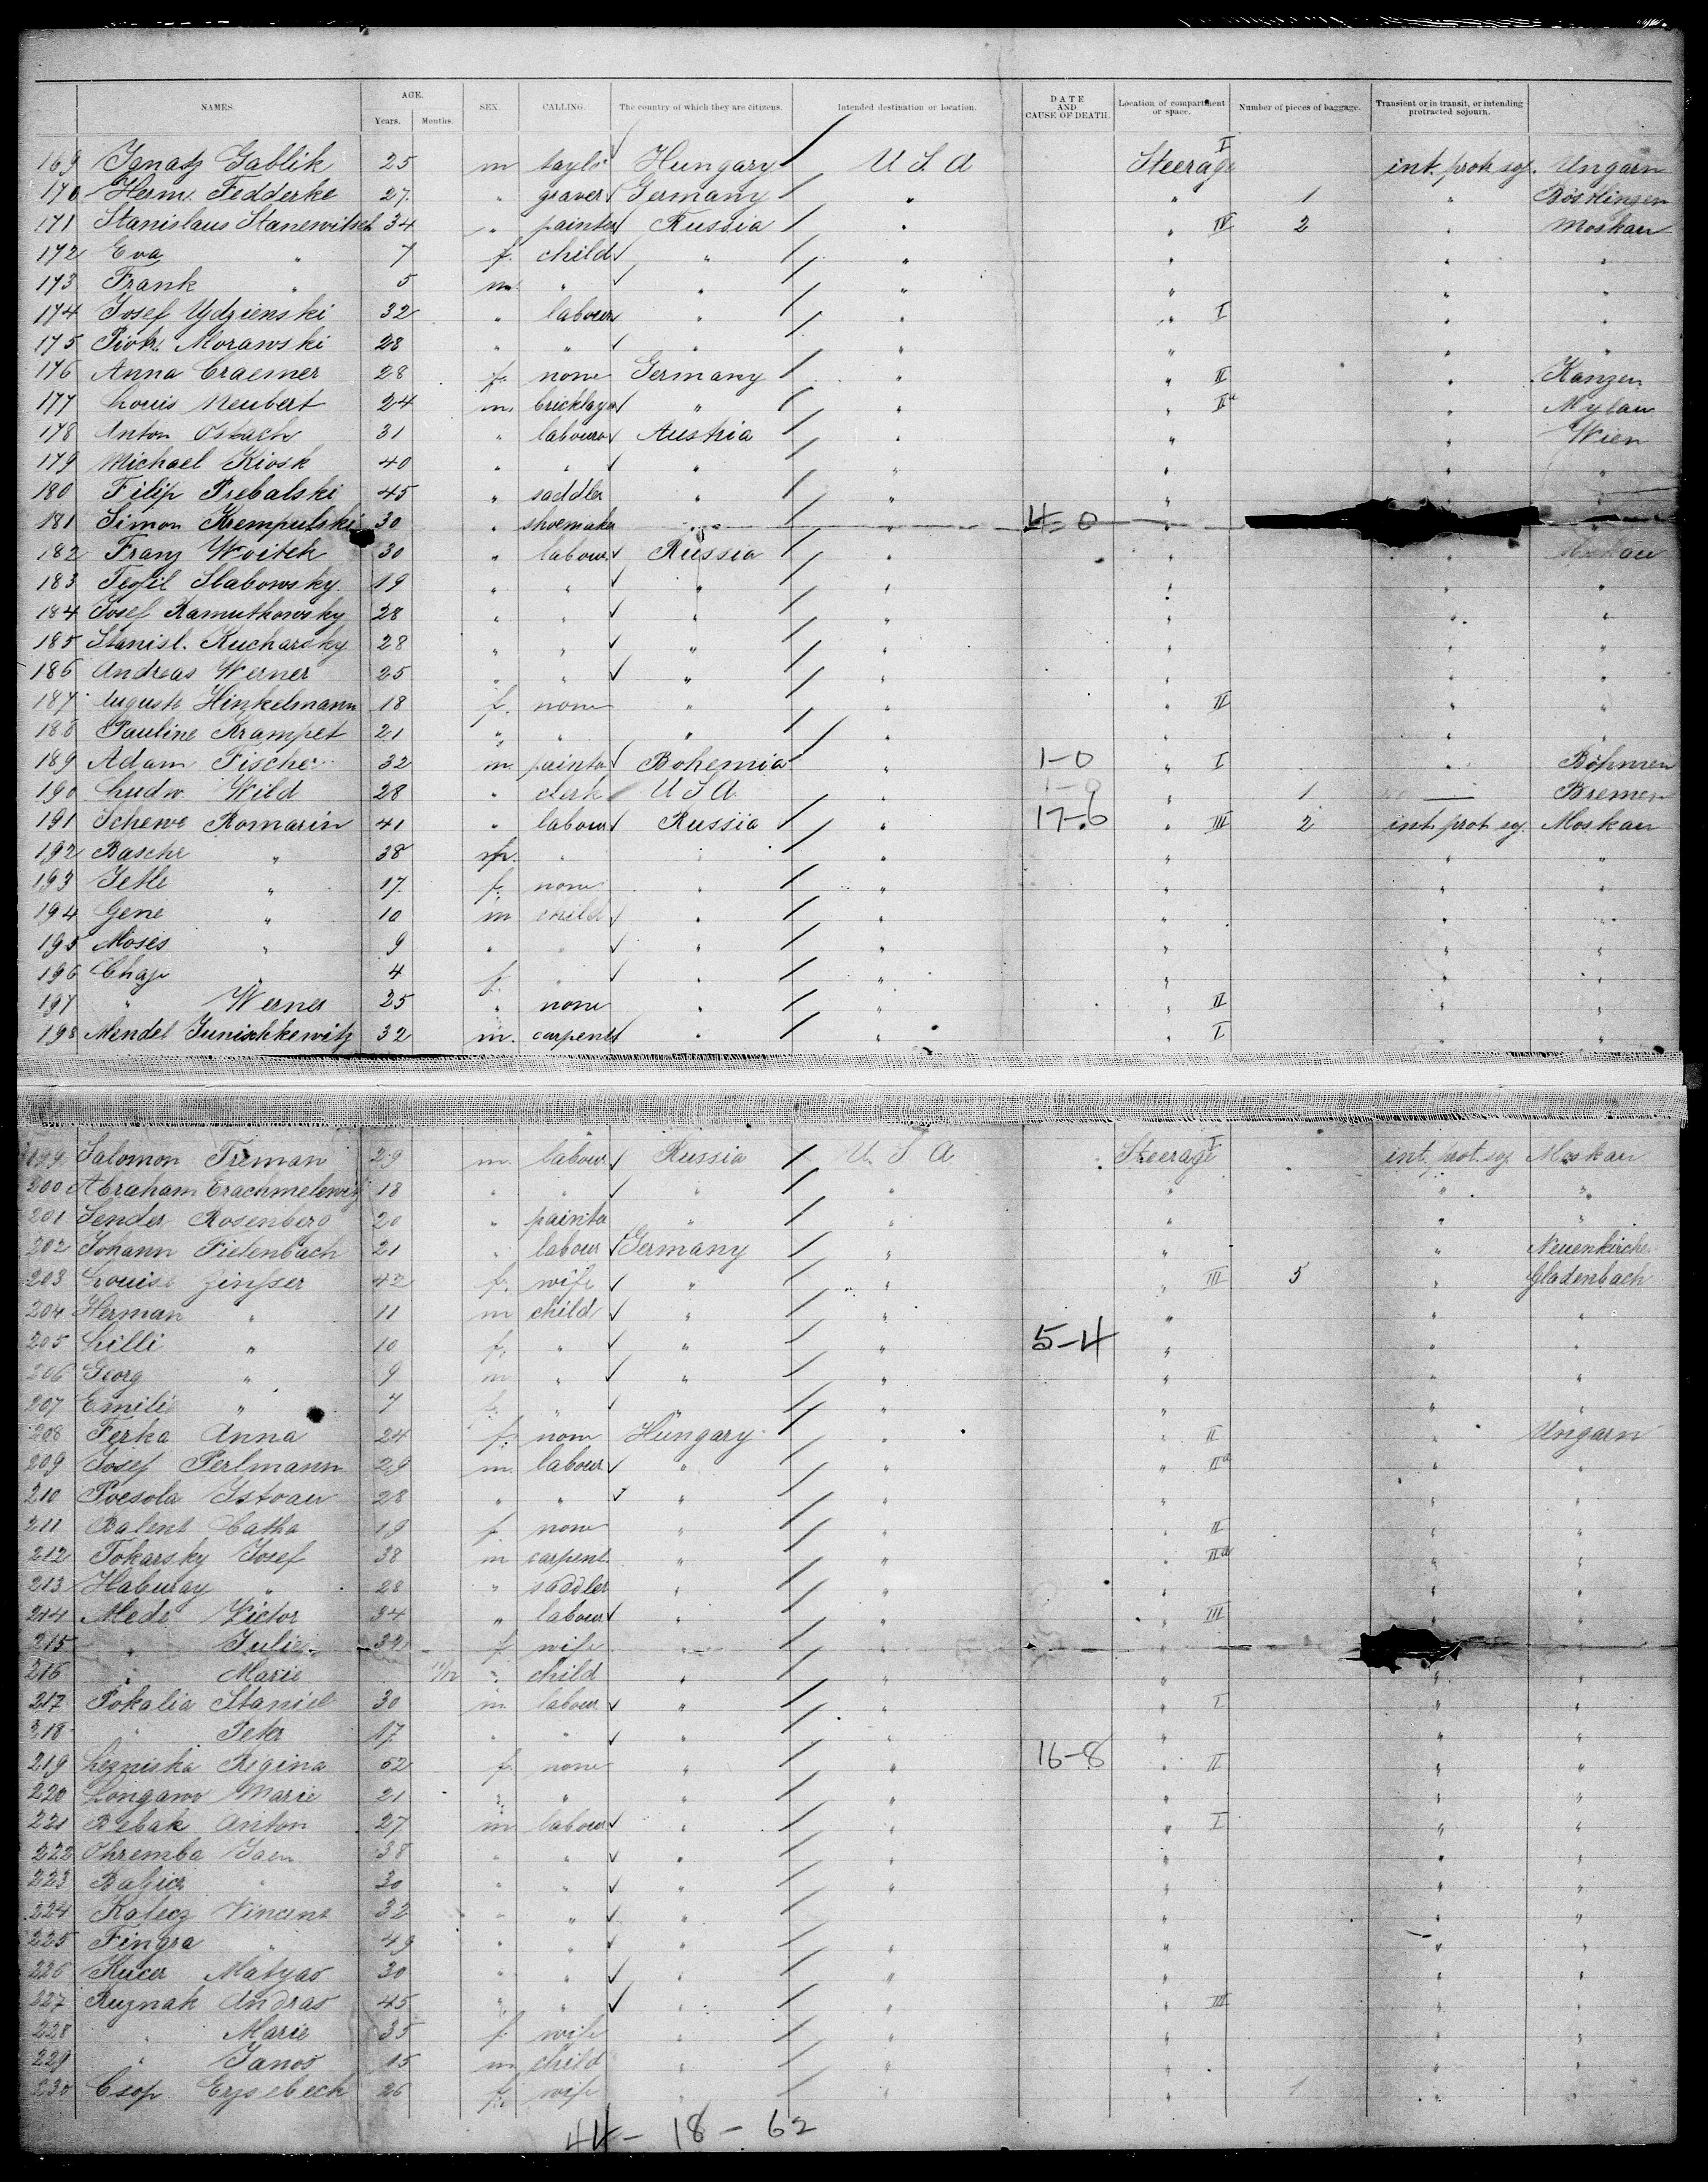 NAMES. AGE. SEX. CALLING. The country of which they are citizens. Intended destination or location. DATE AND CAUSE OF DEATH. Location of compartment or space. Number of pieces of baggage. Transient or in transit, or intending protracted sojourn.
Years. Months.
169 Ignatz Gablik 25 m Hungary U S A Steerage I int. prot. soj. Ungarn
170 Herm. Fedderke 27 " graver Germany " " 1 "
171 Stanislaus Stanewitsch 34 " painter Russia " " IV 2 " Moskau
172 Eva " 7 f. child " " " " "
173 Frank " 5 m. " " " " " "
174 Josef 32 " labour " " " I " "
175 Piotr Morawski 28 " " " " " " "
176 Anna Craemer 28 f. none Germany " " II "
177 Louis Neubert 24 m. bricklayer " " " IIa " Mylau
178 Anton 31 " labourer Austria " " " Wien
179 Michael Kiosk 40 " " " " " " "
180 Filip Prebalski 45 " saddler " " " " "
181 Simon Krempulski 30 " shoemaker " " 4-0 "
182 Franz Woitek 30 " labour Russia " " "
183 Teofil Slabowsky 19 " " " " " " "
184 Josef Ramutkowsky 28 " " " " " " "
185 Stanisl. Kucharsky 28 " " " " " " "
186 Andreas Werner 25 " " " " " " "
187 Auguste Hinkelmann 18 f. none " " " II " "
188 Pauline Krampet 21 " " " " " " "
189 Adam Fischer 32 m. painter Bohemia " 1-0 " I " Böhmen
190 Ludw. Wild 28 " clerk U S A " 1-0 " 1 — Bremen
191 Schewe Romarin 41 " labour Russia " 17-6 " III 2 int. prot. soj. Moskau
192 Basche " 38 " " " " " "
193 Jette " 17 f. none " " " " "
194 Gene " 10 m child " " " " "
195 Moses " 9 " " " " " " "
196 Chaje " 4 f. " " " " " "
197 " Werner 25 " none " " " II " "
198 Mendel Junischkewitz 32 m. carpenter " " " I " "
199 Salomon Treman 29 m. labour Russia U S A Steerage I int. prot. soj. Moskau
200 Abraham 18 " " " " " " "
201 Sender Rosenberg 20 " painter " " " " "
202 Johann Fietenbach 21 " labour Germany " " " Neuenkirche
203 Louise Zinsser 42 f. wife " " " III 5 " Gladenbach
204 Herman " 11 m child " " " " "
205 Lilli " 10 f. " " " 5-4 " " "
206 Georg " 9 m " " " " " "
207 Emilie " 7 f. " " " " " "
208 Ferka Anna 24 f. none Hungary " " II " Ungarn
209 Josef Perlmann 29 m. labour " " " IIa " "
210 Istvan 28 " " " " " " "
211 Balent Catha 19 f. none " " " II " "
212 Tokarsky Josef 38 m carpent. " " " IIa " "
213 Haburay " 28 " saddler " " " " "
214 Mede Victor 34 " labour " " " III " "
215 " Julie f wife " " " "
216 " Marie 11/12 " child " " " " "
217 Pokalia 30 m. labour " " " I " "
218 " Peter 17 " " " " " " "
219 Regina 52 f. none " " 16-8 " II " "
220 Marie 21 " " " " " " "
221 Bebak Anton 27 m labour " " " I " "
222 38 " " " " " " "
223 " 30 " " " " " " "
224 Kolecz Vincent 32 " " " " " "
225 Fingra " 49 " " " " " " "
226 Kucer Matyas 30 " " " " " " "
227 Ruznak Andras 45 " " " " " III " "
228 " Marie 35 f. wife " " " " "
229 " Janos 15 m child " " " " "
230 Csop 26 f. wife " " " 1 " "
44 - 18 - 62